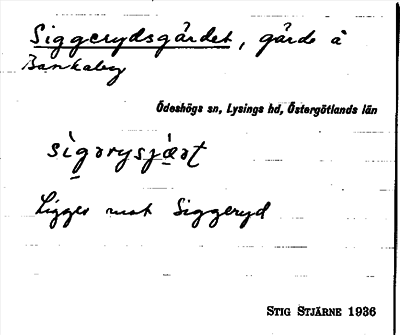 Siggerydsgärdet, gärde å
Bankeberg
Ödeshögs sn, Lysings hd, Östergötlands län
Ligger mot Siggeryd
STIG STJÄRNE 1936